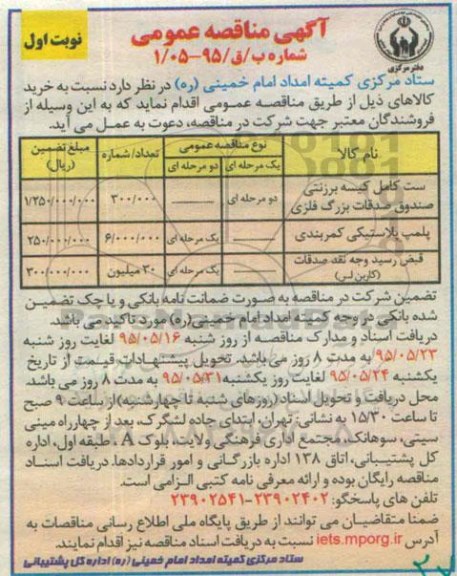 آگهی مناقصه عمومی
شماره ب/ق/۹۵-۱/۰۵
نوبت اول
دفتر مرکزی
ستاد مرکزی کمیته امداد امام خمینی (ره) در نظر دارد نسبت به خرید
کالاهای ذیل از طریق مناقصه عمومی اقدام نماید که به این وسیله از
فروشندگان معتبر جهت شرکت در مناقصه، دعوت به عمل می آید.
نام کالا نوع مناقصه عمومی تعداد/شماره مبلغ تضمین (ریال)
یک مرحله ای دو مرحله ای
ست کامل کیسه برزنتی صندوق صدقات بزرگ فلزی دو مرحله ای ۳۰۰/۰۰۰ ۱/۲۵۰/۰۰۰/۰۰۰
پلمب پلاستیکی کمربندی یک مرحله ای ۶/۰۰۰/۰۰۰ ۲۵۰/۰۰۰/۰۰۰
قبض رسید وجه نقد صدقات (کاربن لس) یک مرحله ای ۳۰ میلیون ۳۰۰/۰۰۰/۰۰۰
تضمین شرکت در مناقصه به صورت ضمانت نامه بانکی و یا چک تضمین
شده بانکی در وجه کمیته امداد امام خمینی (ره) مورد تاکید می باشد.
دریافت اسناد و مدارک مناقصه از روز شنبه ۹۵/۰۵/۱۶ لغایت روز شنبه
۹۵/۰۵/۲۳ به مدت ۸ روز می باشد. تحویل پیشنهادات قیمت از تاریخ
یکشنبه ۹۵/۰۵/۲۴ لغایت روز یکشنبه ۹۵/۰۵/۳۱ به مدت ۸ روز می باشد.
محل دریافت و تحویل اسناد (روزهای شنبه تا چهارشنبه) از ساعت ۹ صبح
تا ساعت ۱۵/۳۰ به نشانی: تهران، ابتدای جاده لشگرک، بعد از چهارراه مینی
سیتی، سوهانک، مجتمع اداری فرهنگی ولایت، بلوک A، طبقه اول، اداره
کل پشتیبانی، اتاق ۱۳۸ اداره بازرگانی و امور قراردادها. دریافت اسناد
مناقصه رایگان بوده و ارائه معرفی نامه کتبی الزامی است.
تلفن های پاسخگو: ۲۳۹۰۲۴۰۲-۲۳۹۰۲۵۴۱
ضمنا متقاضیان می توانند از طریق پایگاه ملی اطلاع رسانی مناقصات به
آدرس iets.mporg.ir نسبت به دریافت اسناد مناقصه نیز اقدام نمایند.
ستاد مرکزی کمیته امداد امام خمینی (ره) اداره کل پشتیبانی